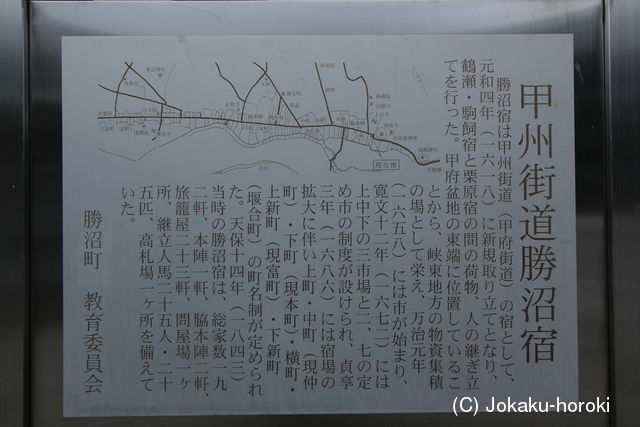 甲州街道勝沼宿
勝沼宿は甲州街道（甲府街道）の宿として、
元和四年（一六一八）に新規取り立てとなり、
鶴瀬・駒飼宿と栗原宿の間の荷物、人の継ぎ立
てを行った。甲府盆地の東端に位置しているこ
とから、峡東地方の物資集積
の場として栄え、万治元年
（一六五八）には市が始まり、
寛文十二年（一六七二）には
上中下の三市場と二、七の定
め市の制度が設けられ、貞享
三年（一六八六）には宿場の
拡大に伴い上町・中町（現仲
町）・下町（現本町）・横町・
上新町（現富町）・下新町
（堰合町）の町名制が定められ
た。天保十四年（一八四三）
当時の勝沼宿は、総家数一九
二軒、本陣一軒、脇本陣二軒、
旅籠屋二十三軒、問屋場一ヶ
所、継立人馬二十五人・二十
五匹、高札場一ヶ所を備えて
いた。
勝沼町 教育委員会
現在地
(C) Jokaku-horoki